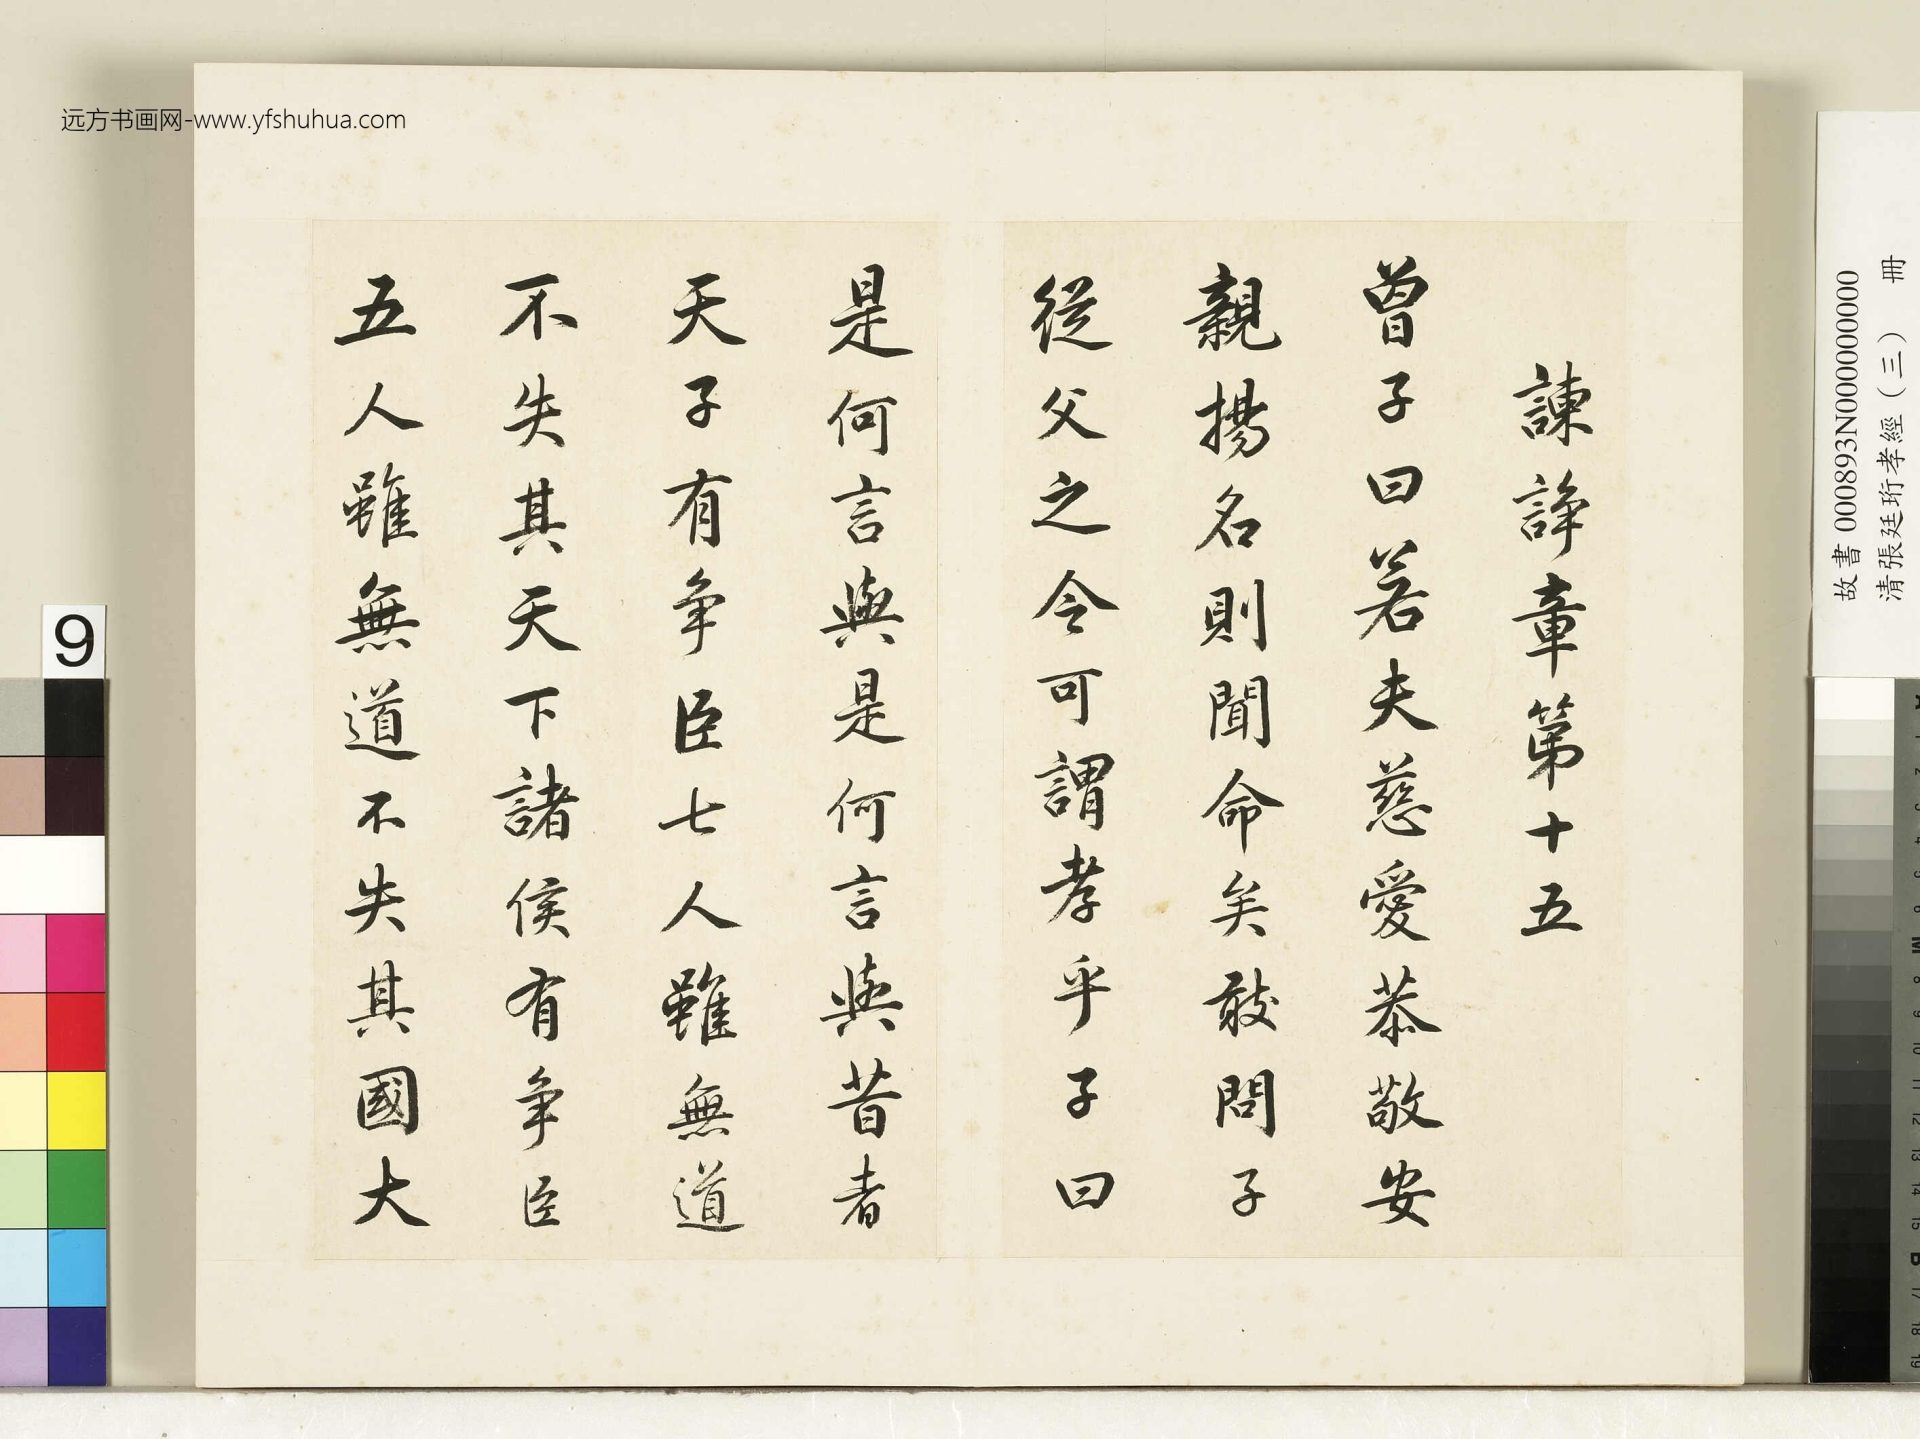 諫諍章第十五
曾子曰若夫慈愛恭敬安
親揚名則聞命矣敢問子
從父之令可謂孝乎子曰
是何言與是何言與昔者
天子有爭臣七人雖無道
不失其天下諸侯有爭臣
五人雖無道不失其國大
远方书画网-www.yfshuhua.com
故書 000893N000000000
清張廷珩孝經（三） 冊
9